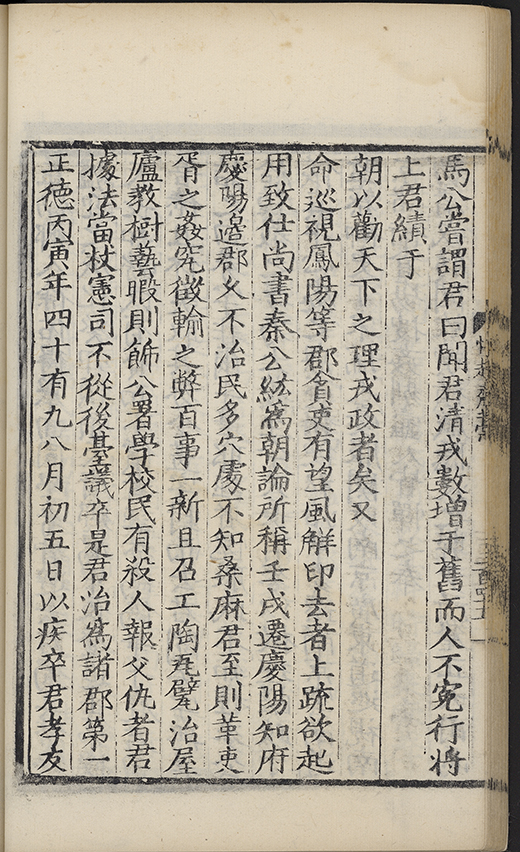 馬公嘗謂君曰聞君清戎數增于舊而人不冤行將
上君績于
朝以勸天下之理戎政者矣又
命巡視鳳陽等郡貪吏有望風觧印去者上疏欲起
用致仕尚書秦公紘為朝論所稱壬戌遷慶陽知府
慶陽邉郡乆不治民多穴處不知桑麻君至則革吏
胥之姦究徵輸之弊百事一新且召工陶瓦甓治屋
廬教樹藝暇則飾公署學校民有殺人報父仇者君
據法當杖憲司不從後臺議卒是君治為諸郡第一
正德丙寅年四十有九八月初五日以疾卒君孝友